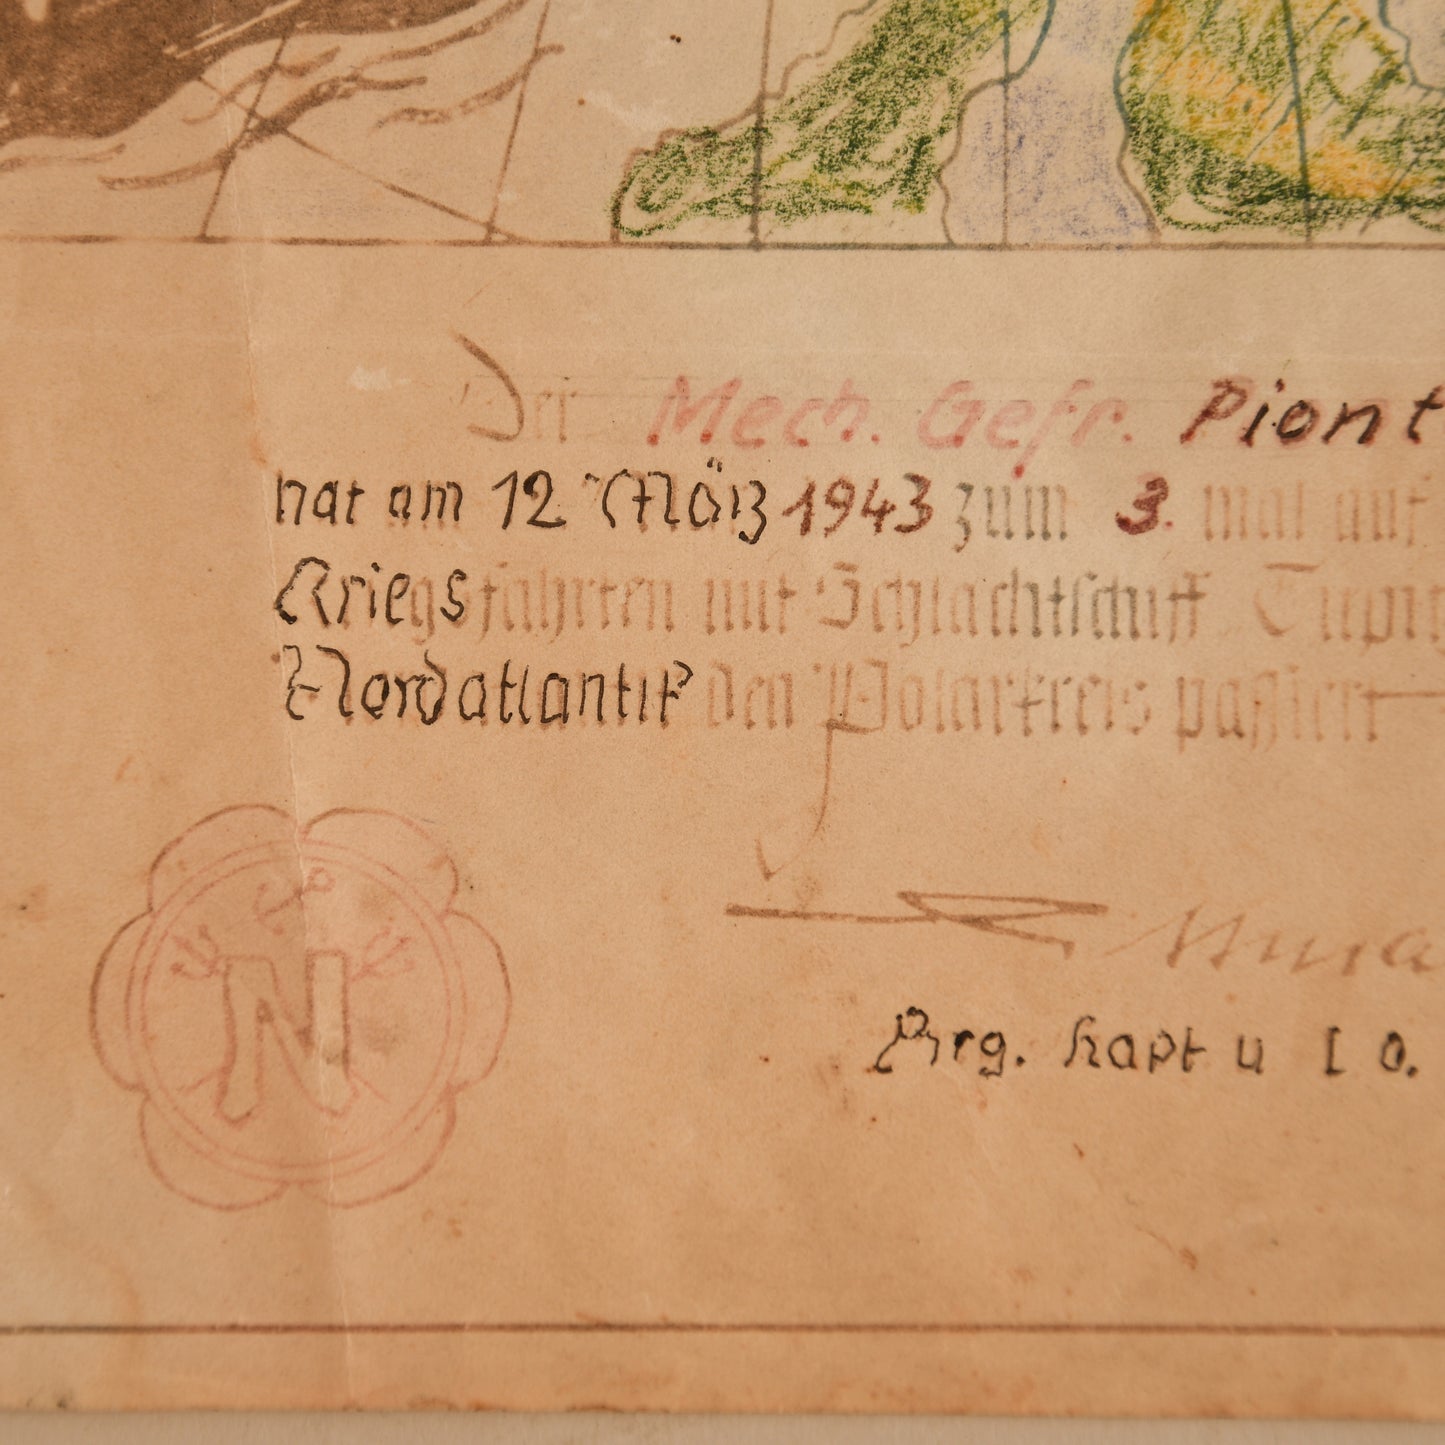 Der Mech. Gefr. Piont
hat am 12 März 1943 zum 3. mal auf
Kriegsfahrten mit Schlachtschiff Tirpi
Nordatlantik den Polarkreis paßiert
Brg. Kapt u I O.
N